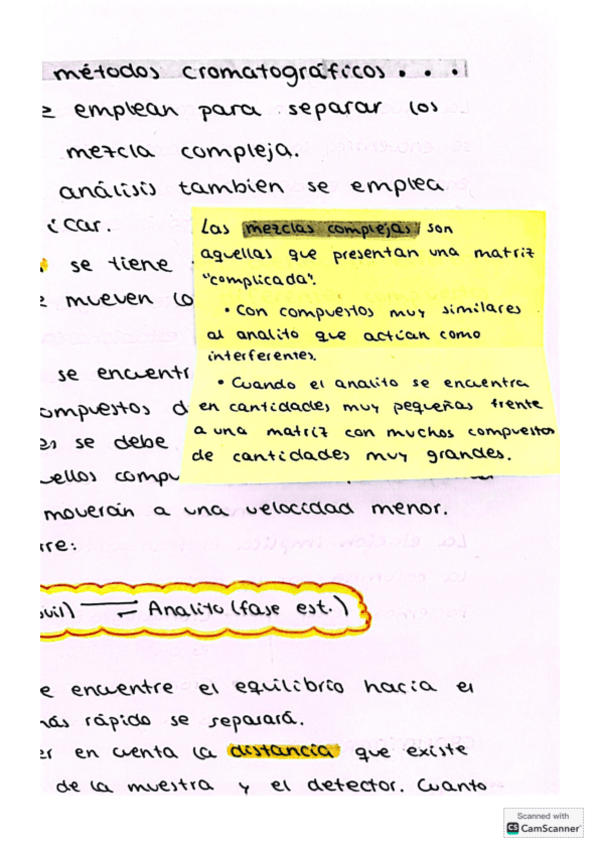 métodos cromatográficos...
emplean para separar los
mezcla compleja.
análisis tambien se emplea
icar.
se tiene
mueven lo
se encuentr
ompuestos d
se debe
ellos compu
moverán a una velocidad menor.
re:
Las mezclas complejas son
aquellas que presentan una matriz
"complicada".
• Con compuestos muy similares
al analito que actúan como
interferentes.
• Cuando el analito se encuentra
en cantidades muy pequeñas frente
a una matriz con muchos compuestos
de cantidades muy grandes.
Analito (fase est.)
e encuentre el equilibrio hacia el
más rápido se separará.
er en cuenta la distancia que existe
de la muestra y el detector. Cuanto
Scanned with
CS CamScanner